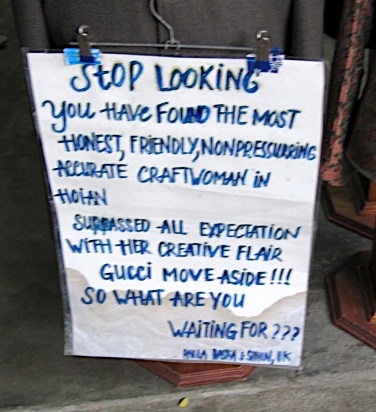 STOP LOOKING
YOU HAVE FOUND THE MOST
HONEST, FRIENDLY, NONPRESSURING
ACCURATE CRAFTWOMAN IN
HOIAN
SURPASSED ALL EXPECTATION
WITH HER CREATIVE FLAIR
GUCCI MOVE ASIDE!!!
SO WHAT ARE YOU
WAITING FOR???
& SIMON, UK